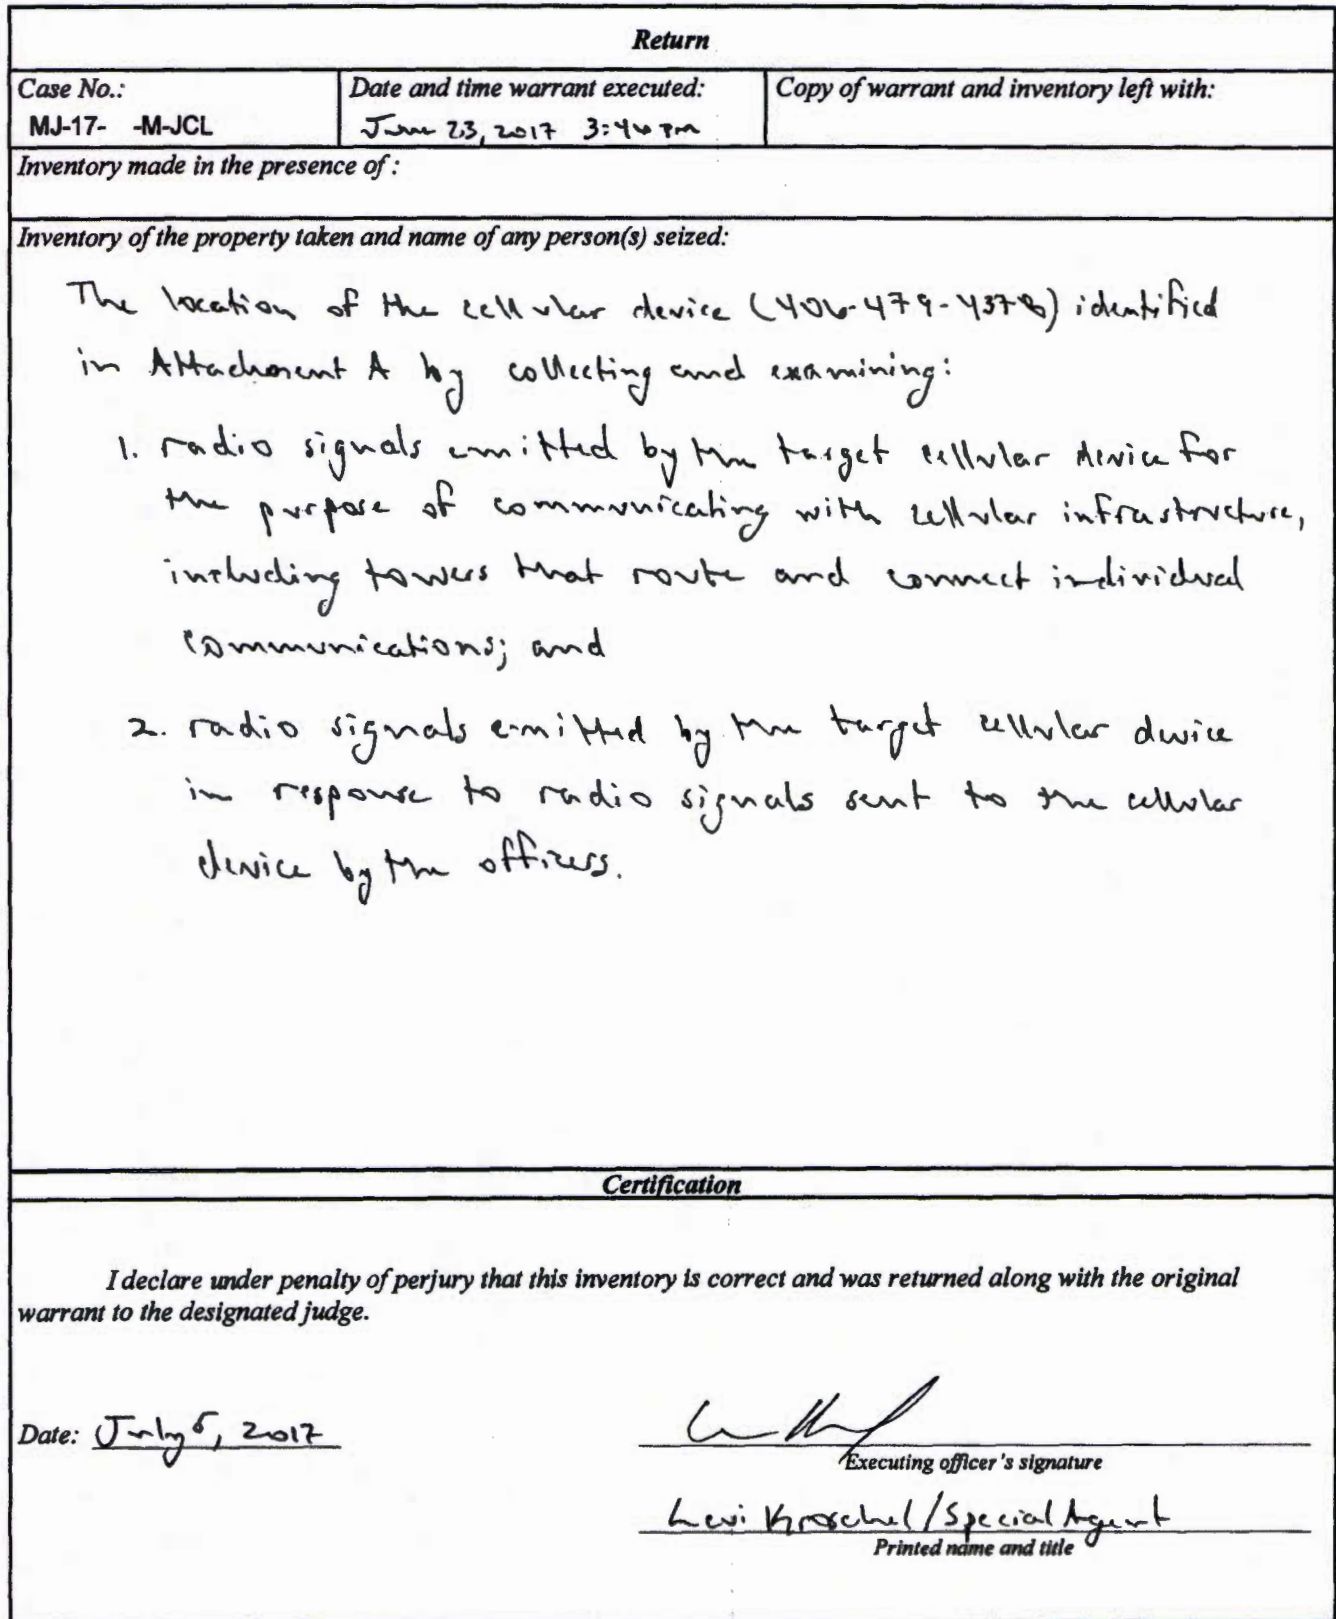 Return
Case No.: Date and time warrant executed: Copy of warrant and inventory left with:
MJ-17- -M-JCL June 23, 2017 3:46 PM
Inventory made in the presence of :
Inventory of the property taken and name of any person(s) seized:
The location of the cellular device (406-479-4378) identified
in Attachment A by collecting and examining:
1. radio signals emitted by the target cellular device for
the purpose of communicating with cellular infrastructure,
including towers that route and connect individual
communications; and
2. radio signals emitted by the target cellular device
in response to radio signals sent to the cellular
device by the officers.
Certification
I declare under penalty of perjury that this inventory is correct and was returned along with the original
warrant to the designated judge.
Date: July 5, 2017
Executing officer's signature
Levi Kroschel/Special Agent
Printed name and title